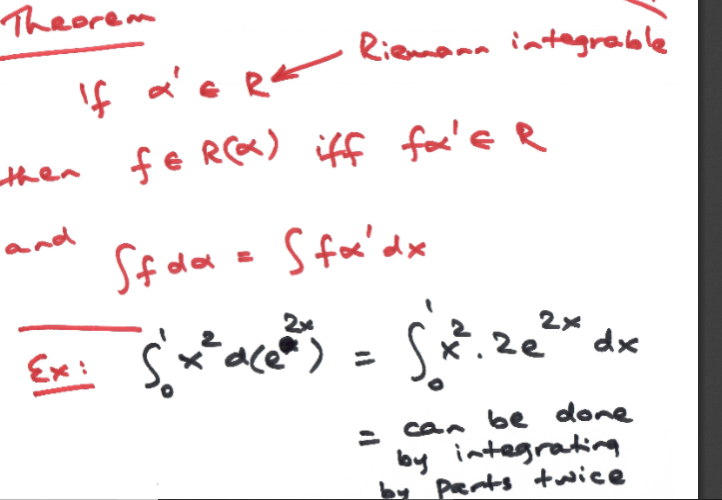 Theorem
Riemann integrable
If α' ∈ R
then f ∈ R(α) iff fα' ∈ R
and ∫f dα = ∫fα'dx
Ex: ∫₀¹ x² d(e²ˣ) = ∫₀¹ x². 2e²ˣ dx
= can be done
by integrating
by parts twice